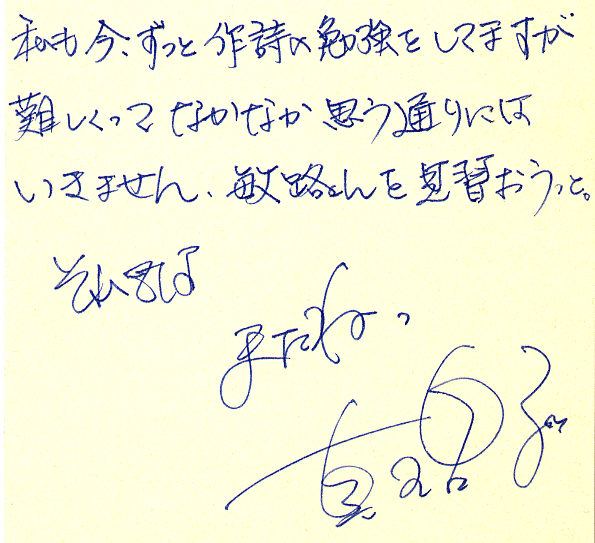 私も今、ずっと作詩の勉強をしてますが
難しくって、なかなか思う通りには
いきません、敏路さんを見習おうっと。
それでは
またねっ